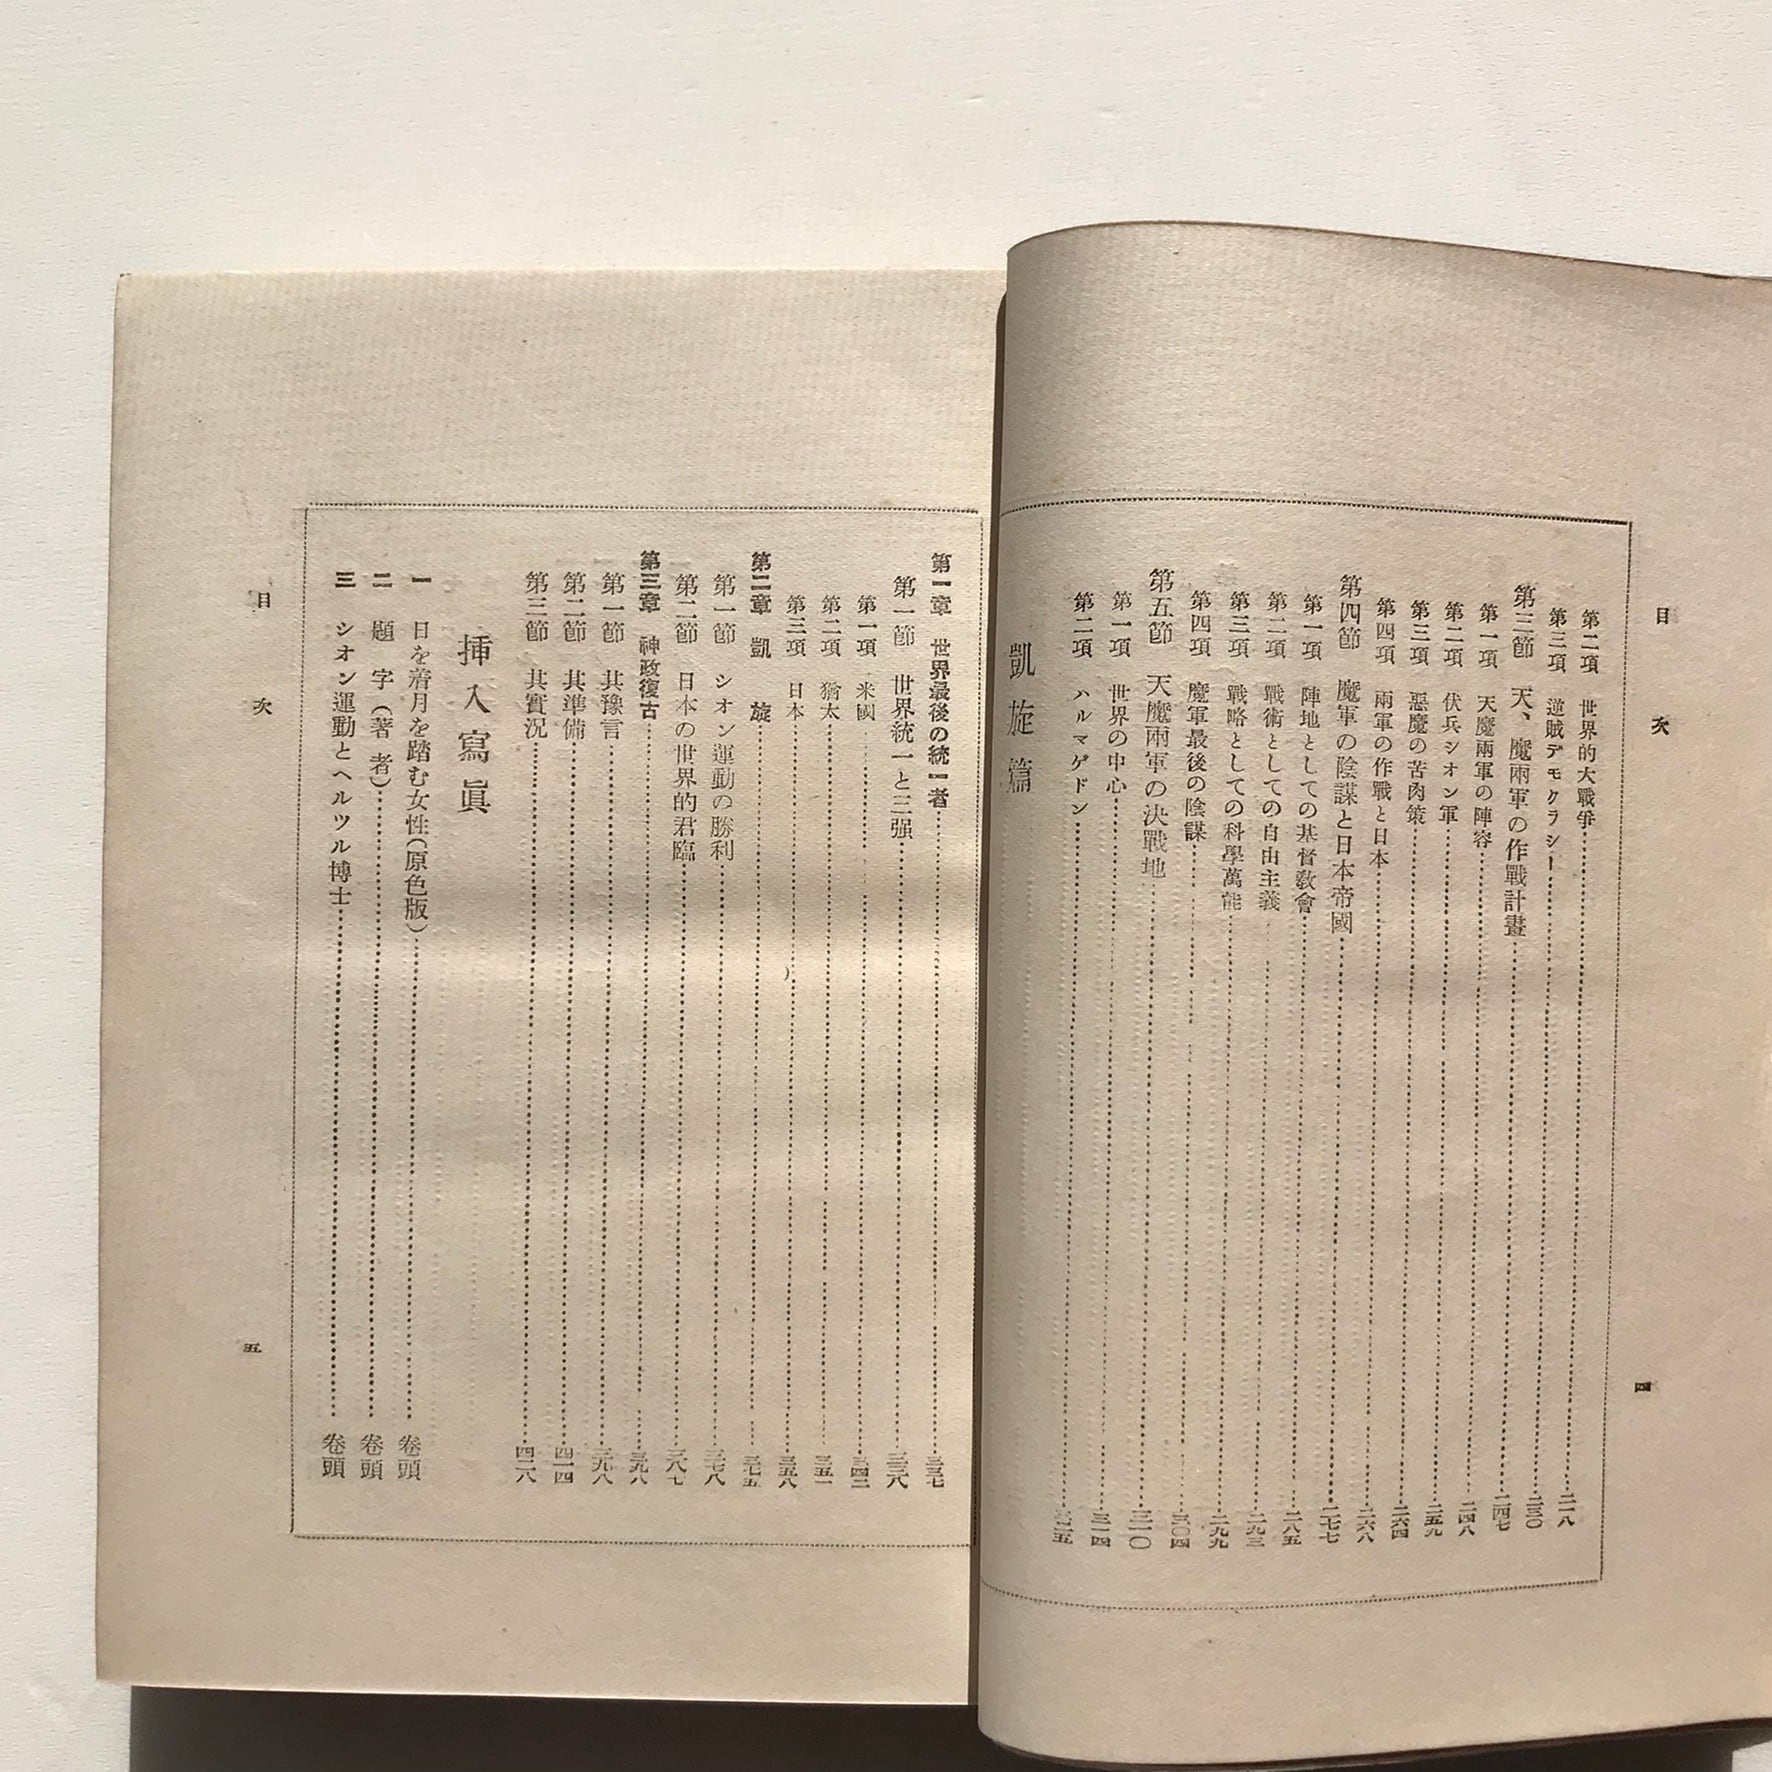 目次
四
第二項 世界的大戰爭 二一八
第三項 逆賊デモクラシー 二三〇
第三節 天、魔兩軍の作戰計畫 二四七
第一項 天魔兩軍の陣容 二四八
第二項 伏兵シオン軍 二五九
第三項 惡魔の苦肉策 二六四
第四項 兩軍の作戰と日本 二六八
第四節 魔軍の陰謀と日本帝國 二七七
第一項 陣地としての基督敎會 二八五
第二項 戰術としての自由主義 二九三
第三項 戰略としての科學萬能 二九九
第四項 魔軍最後の陰謀 三〇四
第五節 天魔兩軍の決戰地 三一〇
第一項 世界の中心 三一四
第二項 ハルマゲドン 三二五
凱旋篇
第一章 世界最後の統一者 三三七
第一節 世界統一と三强 三三八
第一項 米國 三四二
第二項 猶太 三五一
第三項 日本 三五八
第二章 凱旋 三七五
第一節 シオン運動の勝利 三七八
第二節 日本の世界的君臨 三八七
第三章 神政復古 三九八
第一節 其豫言 三九八
第二節 其準備 四一四
第三節 其實況 四二八
挿入寫眞
一 日を着月を踏む女性(原色版) 卷頭
二 題字(著者) 卷頭
三 シオン運動とヘルツル博士 卷頭
目次
五